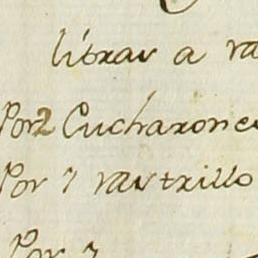 litras a ra
Por 2 Cucharones
Por 1 rastrillo
Por 1